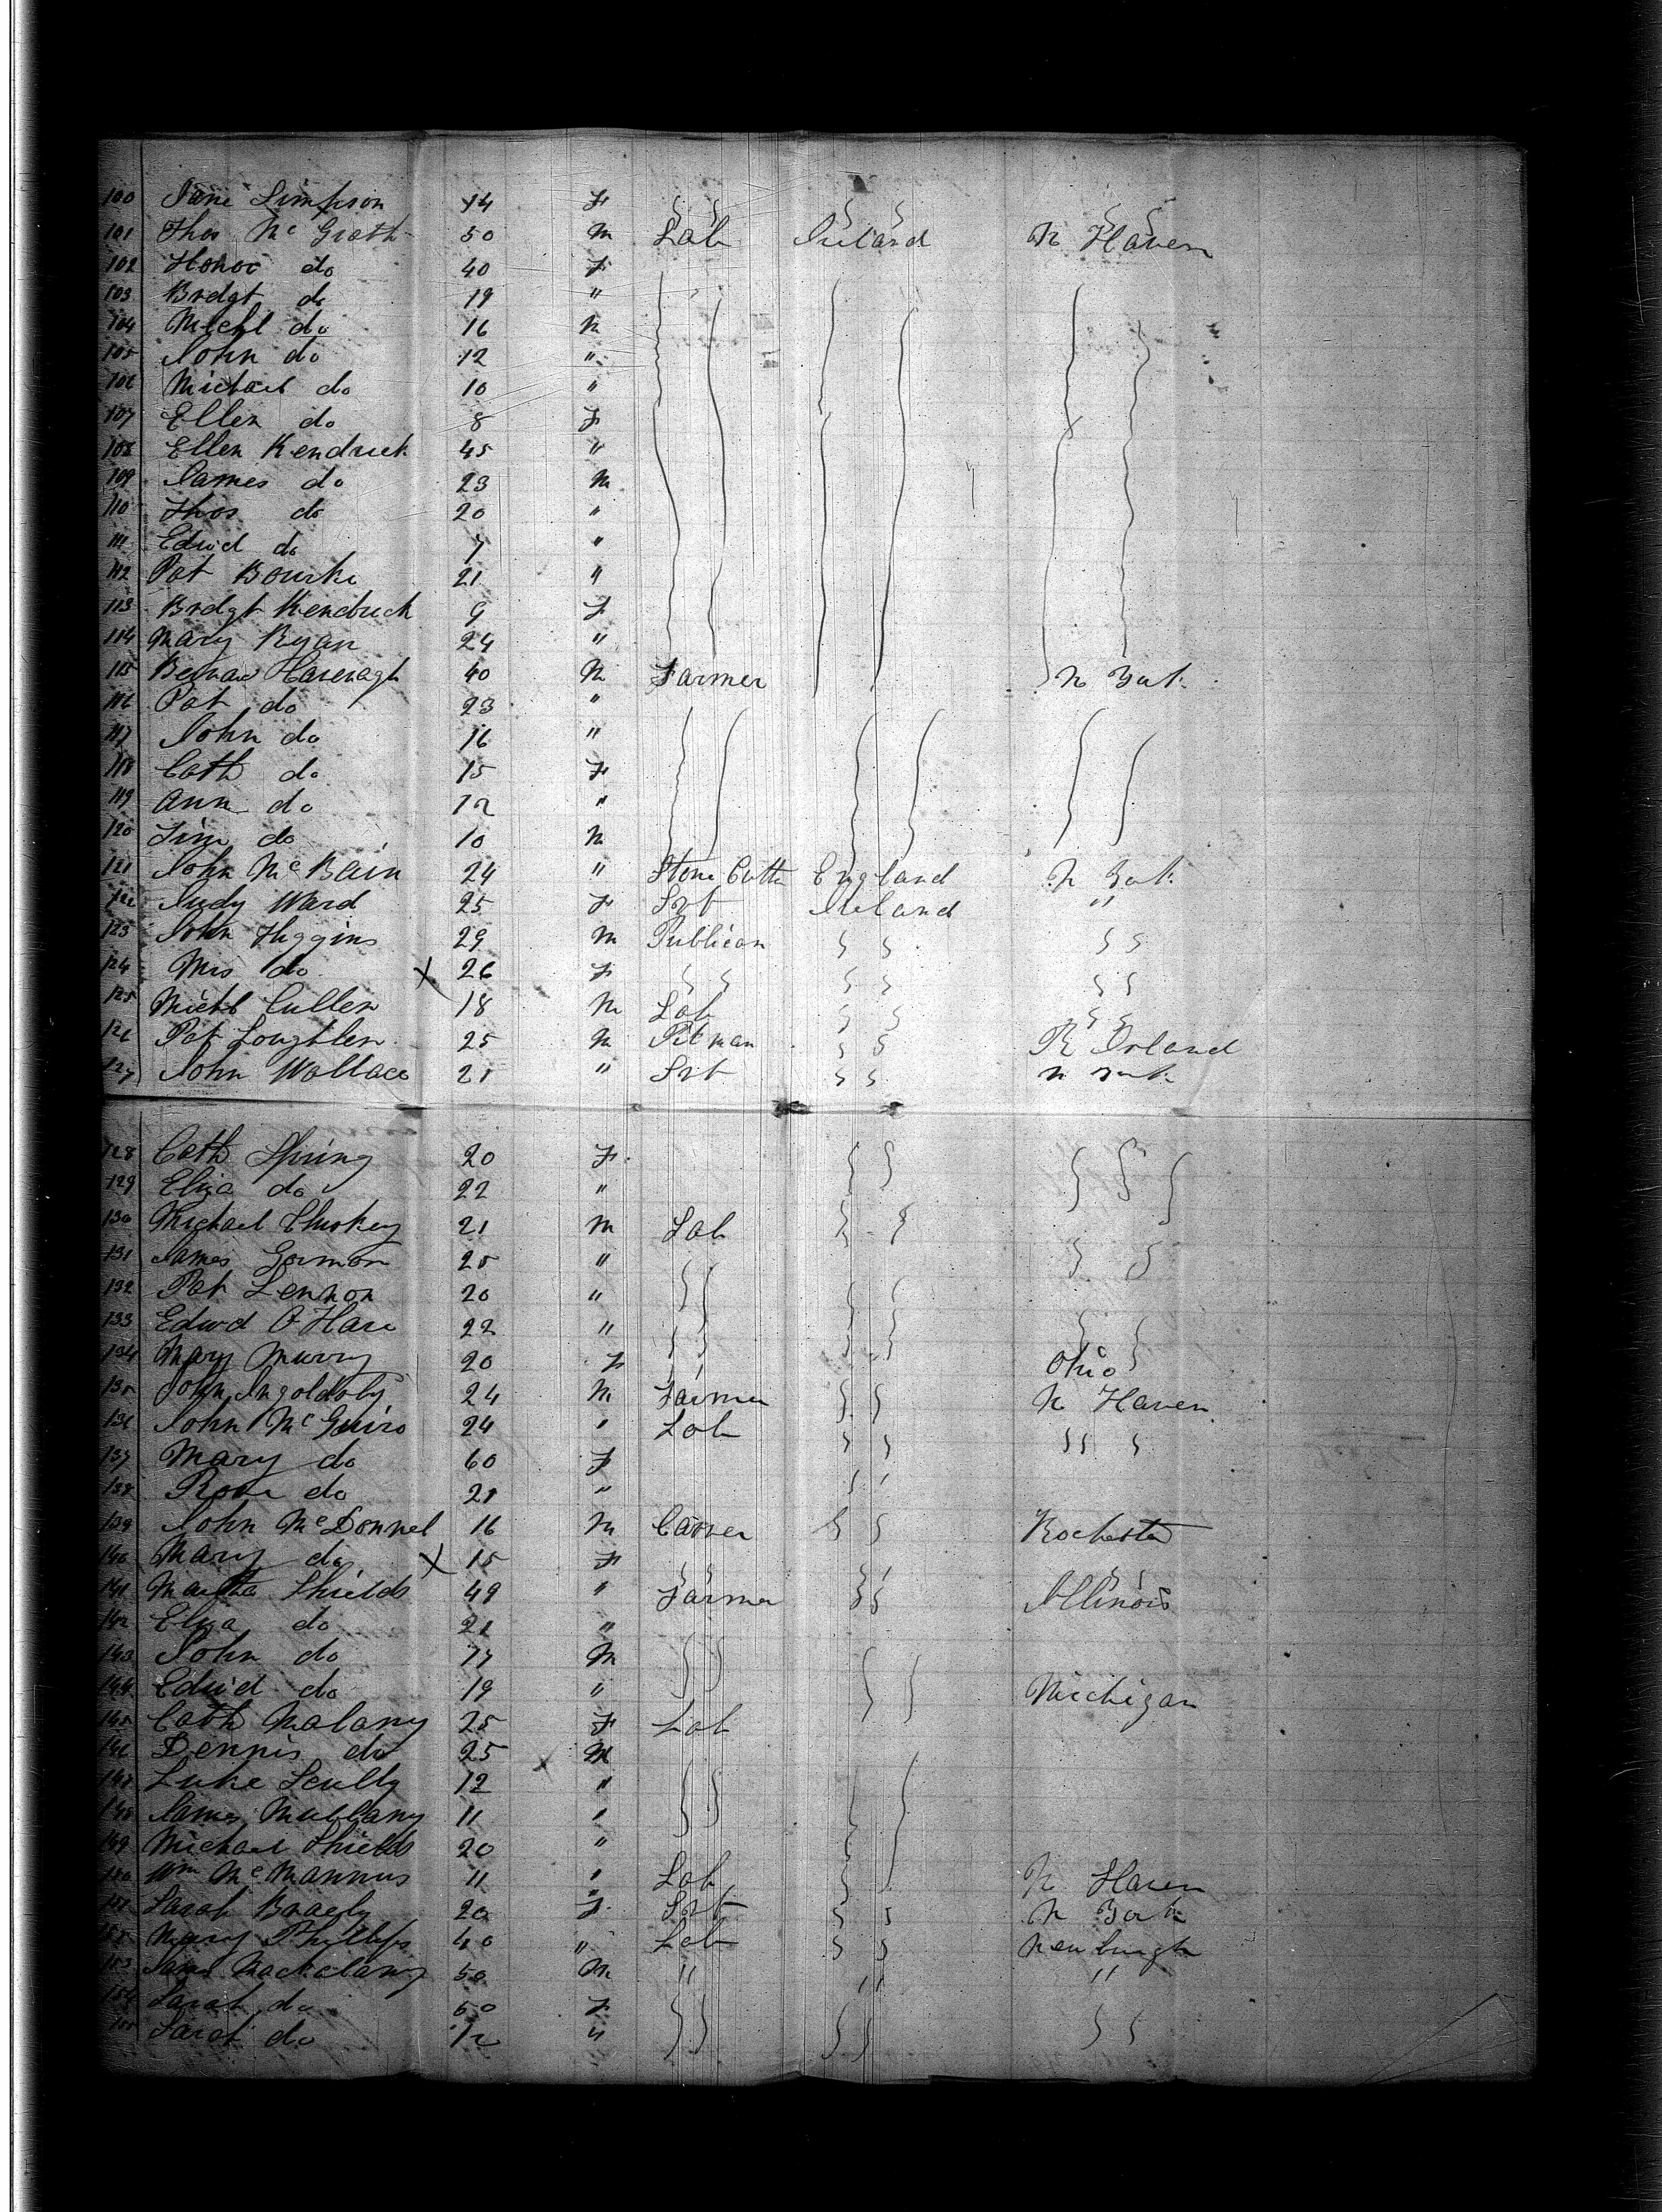 100 Jane Simpson 14 F
101 Thos McGrath 50 M Lab Ireland N Haven
102 Honor do 40 F
103 Brdgt do 19 "
104 Michl do 16 M
105 John do 12 "
106 Michael do 10 "
107 Ellen do 8 F
108 Ellen Kendrick 45 "
109 James do 23 M
110 Thos do 20 "
111 Edwd do 7 "
112 Pat Bourke 21 "
113 Brdgt Kendrick 9 F
114 Mary Ryan 24 "
115 40 M Farmer N York
116 Pat do 23 "
117 John do 16 "
118 Cath do 15 F
119 Ann do 12 "
120 Jim do 10 M
121 John McBain 24 " Stone Cutter England N York
122 Judy Ward 25 F Srt Ireland "
123 John Higgins 29 M Publican
124 Mrs do X 26 F
125 Michl Cullen 18 M Lab
126 Pat Loughlen 25 M Pitman R Island
127 John Wallace 21 " Srt N York
128 Cath Spring 20 F
129 Eliza do 22 "
130 Michael 21 M Lab
131 James Gorman 25 "
132 Pat Lennon 20 "
133 Edwd O Hare 22 "
134 Mary Murry 20 F Ohio
135 John Ingoldsby 24 M Farmer N Haven
136 John McGuire 24 " Lab
137 Mary do 60 F
138 Rose do 21 "
139 John McDonnel 16 M Carver Rochester
140 Mary do X 15 F
141 Martha Shields 49 " Farmer Illinois
142 Eliza do 21 "
143 John do 17 M
144 Edwd do 19 " Michigan
145 Cath Malany 25 F Lab
146 Dennis do 25 X M
147 Luke Scully 12 "
148 James Mullany 11 "
149 Michael Shields 20 "
150 Wm McMannus 11 " Lab N Haven
151 Sarah 20 F Srt N York
152 Mary Phillips 40 " Lab Newburgh
153 50 M " " "
154 Sarah do 50 F
155 Sarah do 12 "